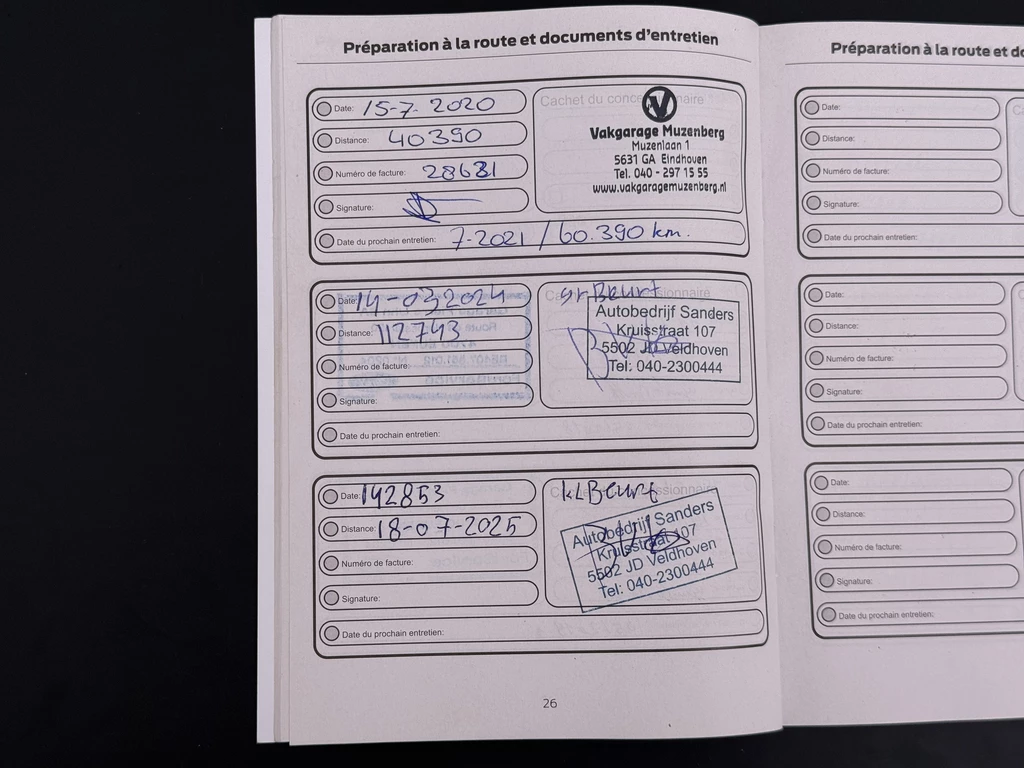 Préparation à la route et documents d'entretien
Date: 15-7-2020
Distance: 40390
Numéro de facture: 28631
Signature:
Date du prochain entretien: 7-2021 / 60.390 km.
Vakgarage Muzenberg
Muzenlaan 1
5631 GA Eindhoven
Tel. 040 - 297 15 55
www.vakgaragemuzenberg.nl
Date: 14-03 2024
Distance: 112743
Numéro de facture:
Signature:
Date du prochain entretien:
gr Beurt
Autobedrijf Sanders
Kruisstraat 107
5502 JD Veldhoven
Tel: 040-2300444
Date: 142853
Distance: 18-07-2025
Numéro de facture:
Signature:
Date du prochain entretien:
kl Beurt
Autobedrijf Sanders
Kruisstraat 107
5502 JD Veldhoven
Tel: 040-2300444
26
Préparation à la route et do
Date:
Distance:
Numéro de facture:
Signature:
Date du prochain entretien:
Date:
Distance:
Numéro de facture:
Signature:
Date du prochain entretien:
Date:
Distance:
Numéro de facture:
Signature:
Date du prochain entretien: